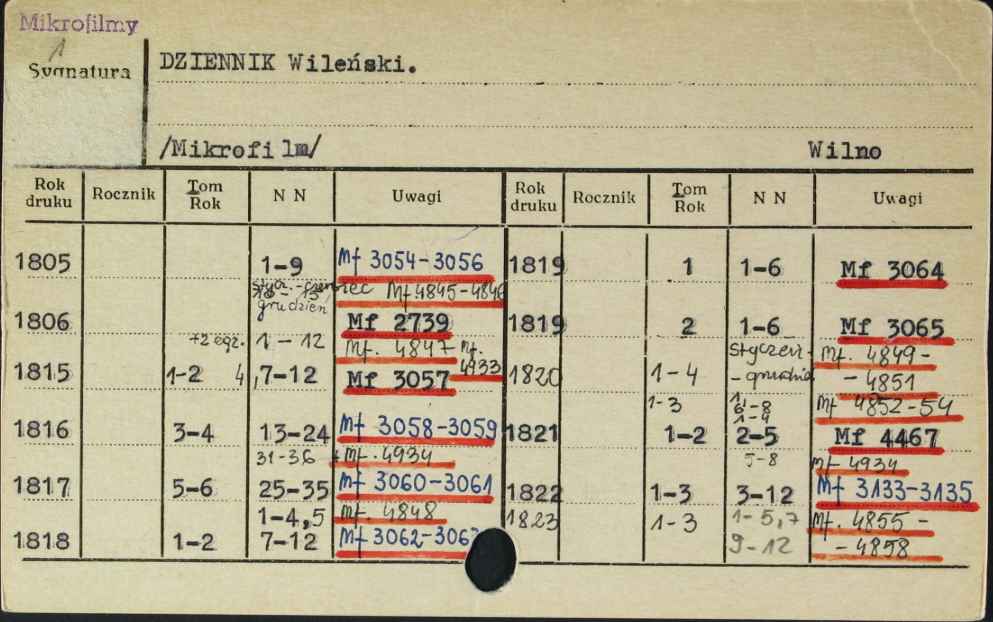 Mikrofilmy
1
Sygnatura
DZIENNIK Wileński.
/Mikrofilm/ Wilno
Rok druku Rocznik Tom Rok N N Uwagi Rok druku Rocznik Tom Rok N N Uwagi
1805 1-9 Mf 3054-3056 1819 1 1-6 Mf 3064
stycz.-czerwiec Mf. 4845-4846
grudzień
1806 Mf 2739 1819 2 1-6 Mf 3065
+2 egz. 1-12 Mf. 4847 Mf. 4933 styczeń- Mf. 4849-
1815 1-2 4,7-12 Mf 3057 1820 1-4 -grudzień -4851
1-3 6-8 Mf 4852-54
1-4
1816 3-4 13-24 Mf 3058-3059 1821 1-2 2-5 Mf 4467
31-36 +Mf. 4934 5-8 Mf 4934
1817 5-6 25-35 Mf 3060-3061 1822 1-3 3-12 Mf 3133-3135
1-4,5 Mf. 4848 1823 1-3 1-5,7 Mf. 4855-
1818 1-2 7-12 Mf 3062-3063 9-12 -4858